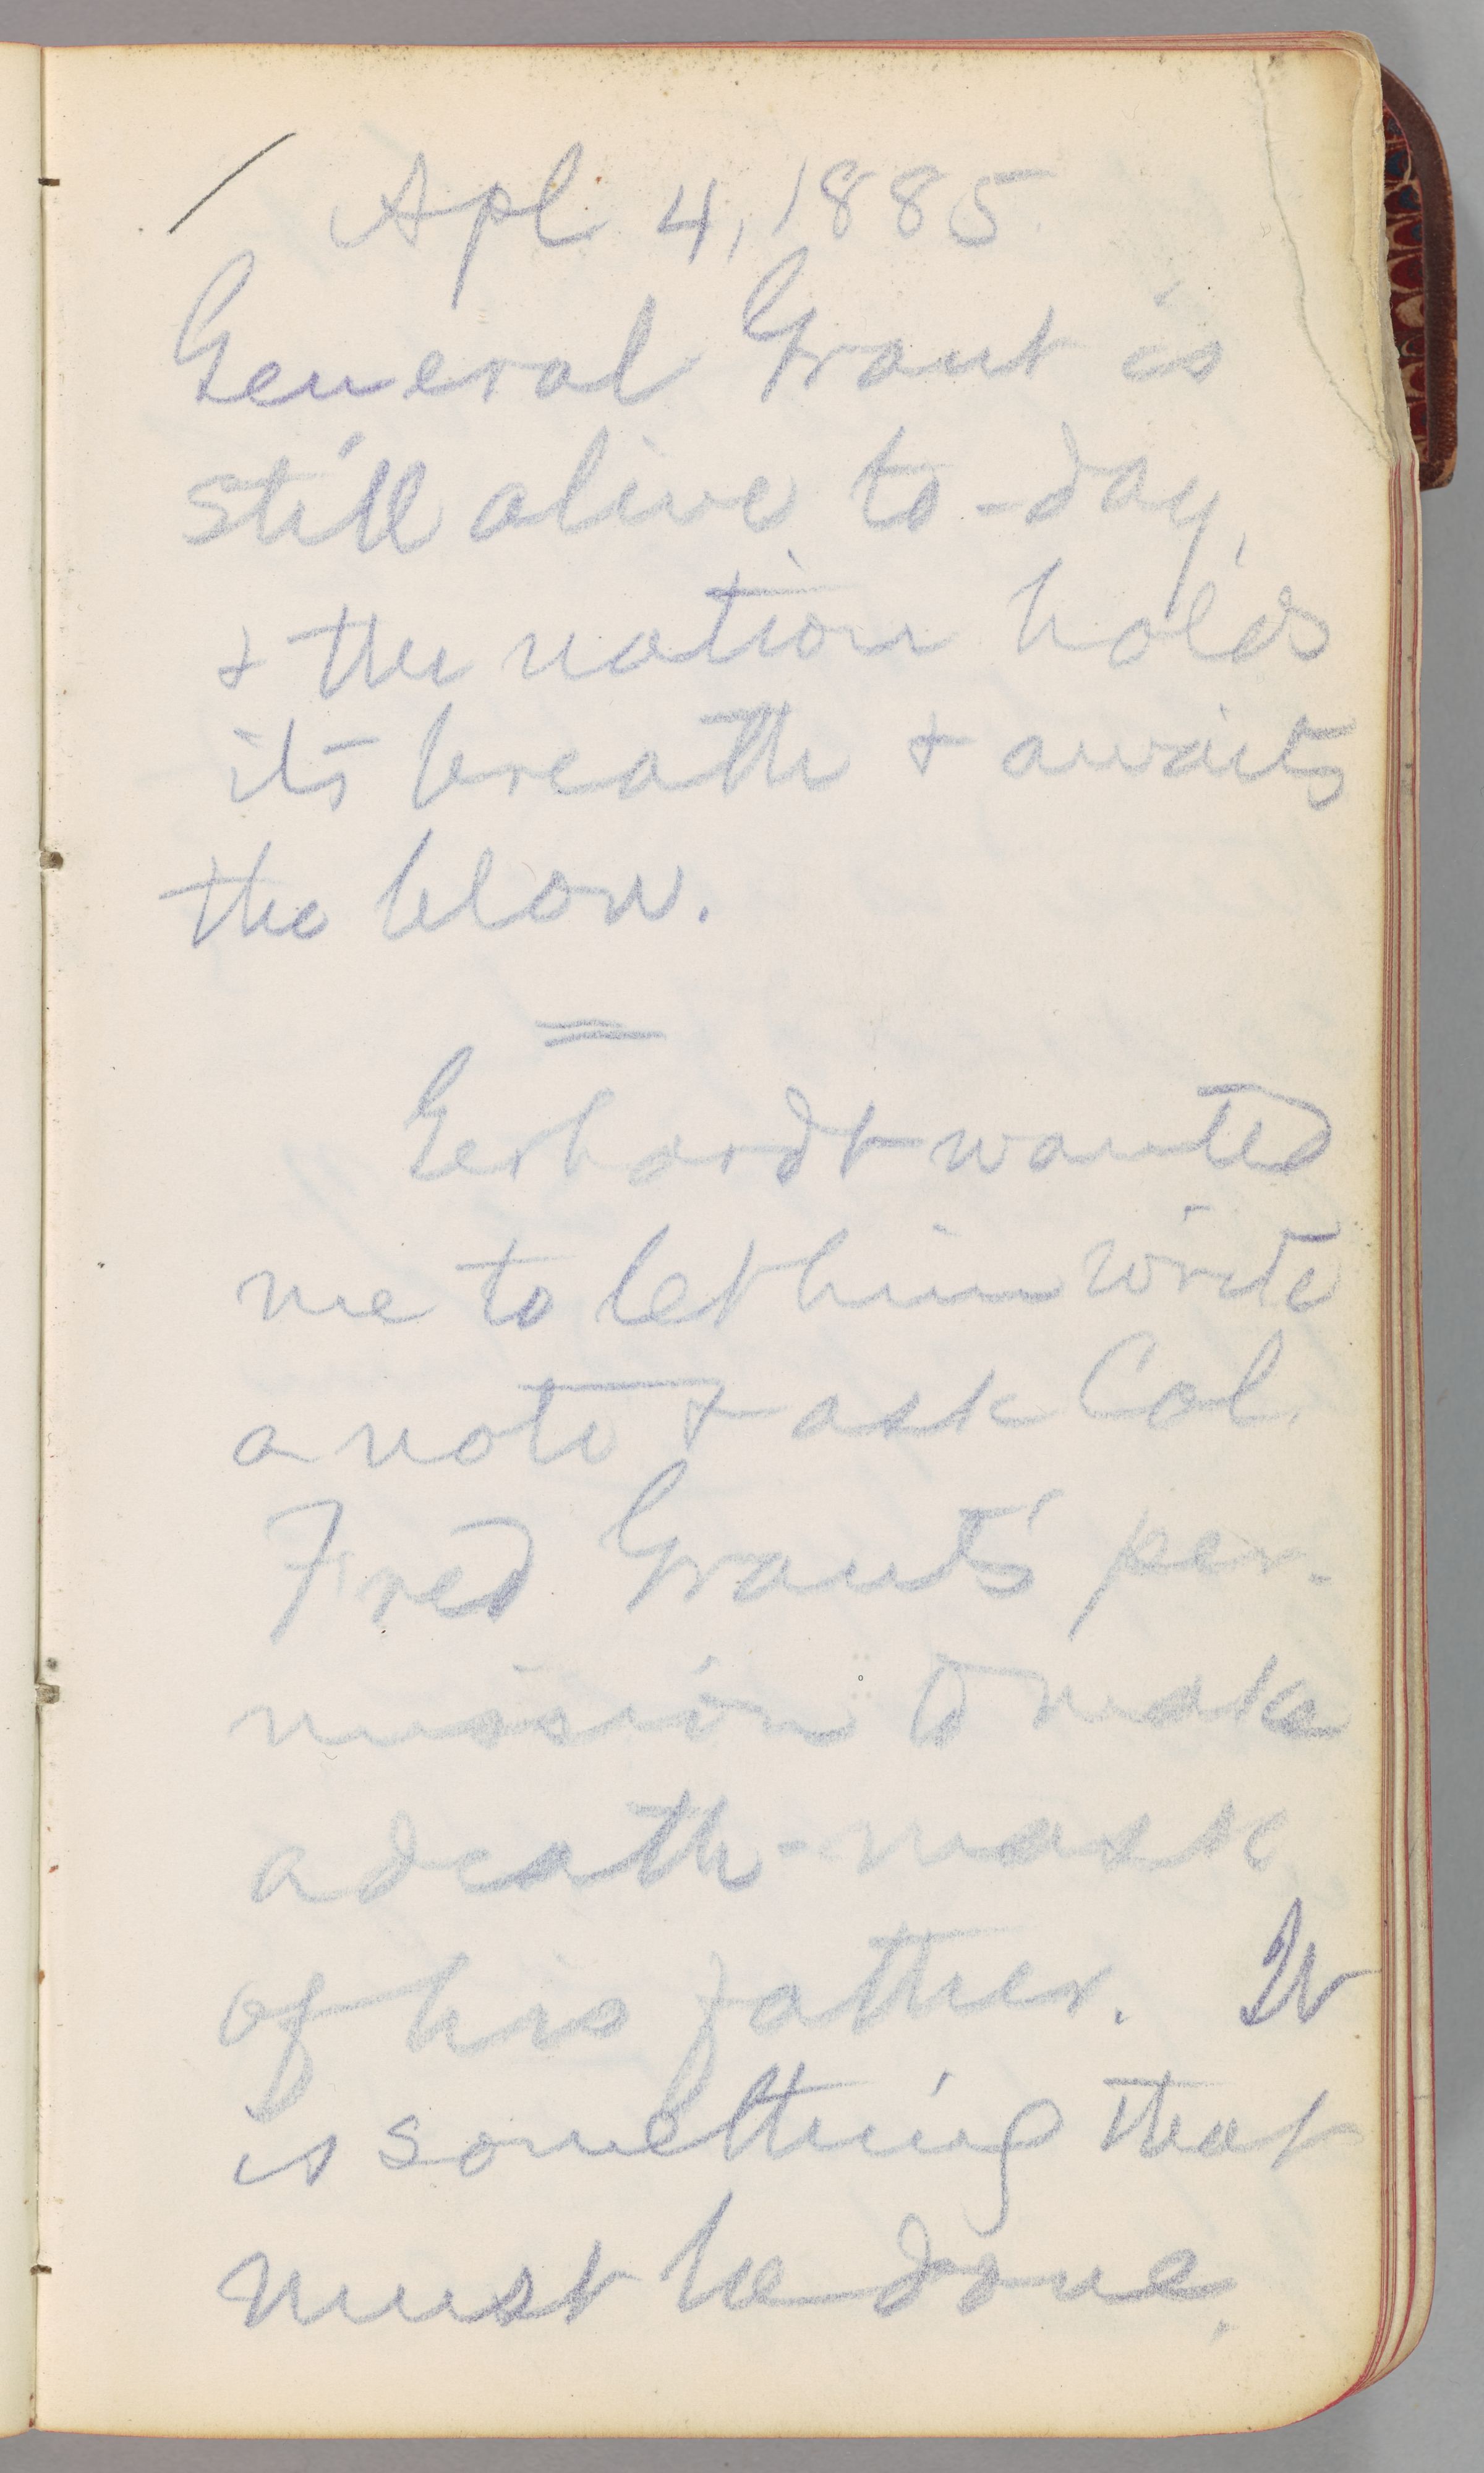 Apl. 4, 1885.
General Grant is
still alive to-day,
& the nation holds
its breath & awaits
the blow.
Gerhardt wanted
me to let him write
a note & ask Col.
Fred Grant's per-
mission to make
a death-mask
of his father. It
is something that
must be done.